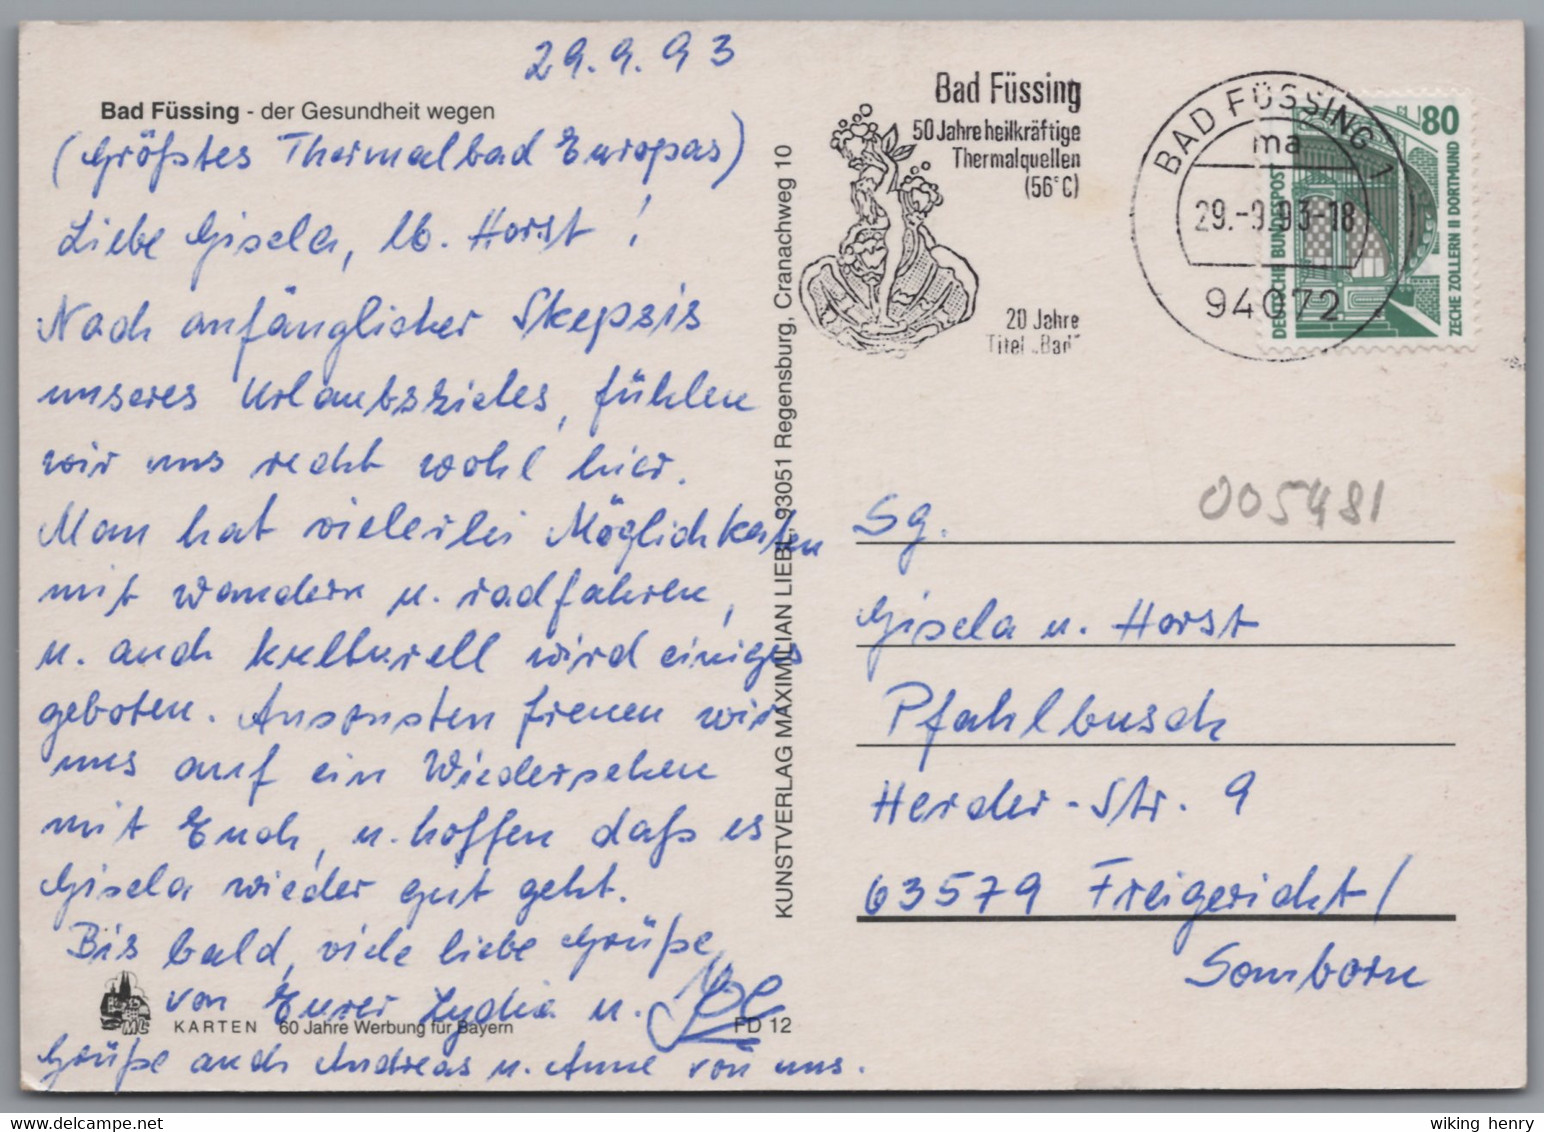 29.9.93
Bad Füssing - der Gesundheit wegen
(Größtes Thermalbad Europas)
Liebe Gisela, lb. Horst!
Nach anfänglicher Skepsis
unseres Urlaubszieles, fühlen
wir uns recht wohl hier.
Man hat vielerlei Möglichkeiten
mit wandern u. radfahren,
u. auch kulturell wird einiges
geboten. Ansonsten freuen wir
uns auf ein Wiedersehen
mit Euch, u. hoffen daß es
Gisela wieder gut geht.
Bis bald, viele liebe Grüße,
von Eurer Lydia u.
ML
KARTEN 60 Jahre Werbung für Bayern
FD 12
Grüße auch Andreas u. Anne von uns.
KUNSTVERLAG MAXIMILIAN LIEBL, 93051 Regensburg, Cranachweg 10
Bad Füssing
50 Jahre heilkräftige
Thermalquellen
(56°C)
20 Jahre
Titel „Bad"
BAD FÜSSING 1
ma
29.-9.93-18
94072
80
DEUTSCHE BUNDESPOST
ZECHE ZOLLERN II DORTMUND
005481
Sg.
Gisela u. Horst
Pfahlbusch
Herder-Str. 9
63579 Freigericht/
Somborn
wiking henry